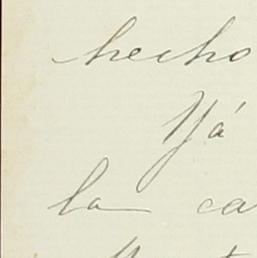 hecho
Yá
la ca